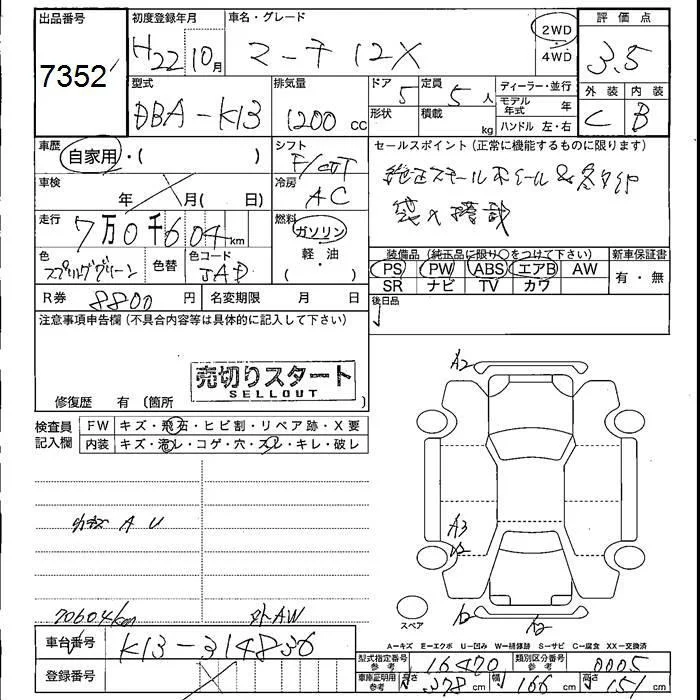 出品番号 初度登録年月 車名・グレード 2WD 評価点
7352 H22 10月 マーチ 12X 4WD 3.5
型式 排気量 ドア 定員 ディーラー・並行 外装 内装
DBA-K13 1200 cc 5 5人 モデル年式 年 C B
形状 積載 kg ハンドル 左・右
車歴 シフト セールスポイント(正常に機能するものに限ります)
自家用・( ) F/
車検 冷房 純正スチールホイール&冬タイヤ
年 月( 日) AC 積
走行 燃料
7万0千604km ガソリン
色 色替 色コード 軽・油 装備品(純正品に限り○をつけて下さい) 新車保証書
スプリンググリーン JAD ( ) PS PW ABS エアB AW 有・無
R券 8800円 名変期限 月 日 SR ナビ TV カワ
注意事項申告欄(不具合内容等は具体的に記入して下さい) 後日品
売切りスタート
SELLOUT
修復歴 有(箇所
A2
検査員記入欄 FW キズ・飛石・ヒビ割・リペア跡・X要
内装 キズ・汚レ・コゲ・穴・スレ・キレ・破レ
小キズ A U A3
U2
70604km 外AW
スペア A2 A2
A=キズ E=エクボ U=凹み W=補修跡 S=サビ C=腐食 XX=交換済
車台番号 K13-314836
型式指定番号 参考 16420 類別区分番号 参考 0005
登録番号 車庫証明用 参考 長さ 378cm 幅 166cm 高さ 151cm